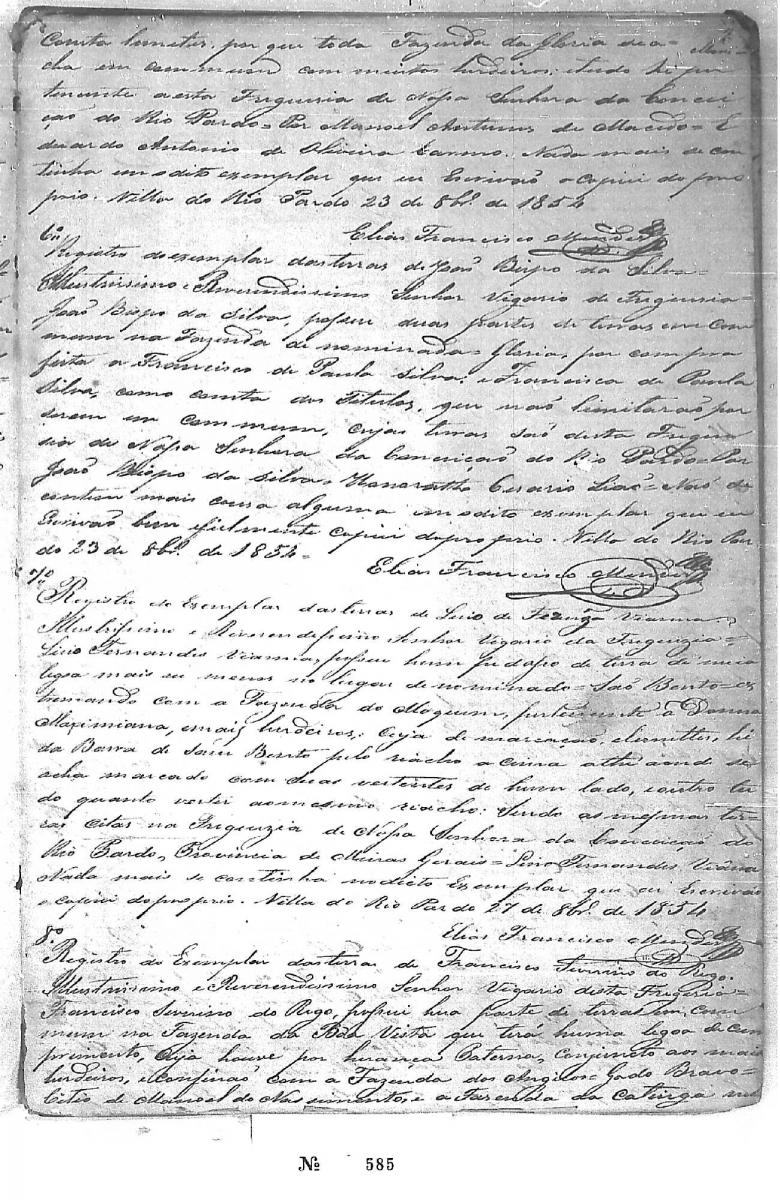 Consta lemites, por que toda Fazenda da Gloria se a-
cha em commum com muitos herdeiros; e tudo he per
tencente a esta Freguesia de Nossa Senhora da Concei
ção do Rio Pardo = Por Manoel Antunes de Macedo = E
duardo Antonio de Oliveira Carmo. Nada mais se con
tinha em o dito exemplar que eu Escrivão o copiei do pro
prio. Villa do Rio Pardo 23 de 8br.º de 1854
Elias Francisco Mendes
6º
Registro do exemplar das terras de João Bispo da Silva =
Illustrissimo e Reverendissimo Senhor Vigario da Freguesia =
João Bispo da Silva, possue duas partes de terras em com
mum na Fazenda denominada = Gloria, por compra
feita a Francisco de Paula Silva, e Francisca de Paula
Silva, como consta dos Titulos, que naõ limitaraõ por
serem em commum, cujas terras saõ desta Fregue
sia de Nossa Senhora da Conceiçaõ do Rio Pardo = Por
João Bispo da Silva = Cesario = Naõ se
contem mais cousa alguma em o dito exemplar que eu
Escrivão bem e fielmente copiei do proprio. Villa do Rio Par
do 23 de 8br.º de 1854 =
Elias Francisco Mendes
7º
Registro do Exemplar das terras de Vianna
Illustrissimo e Reverendissimo Senhor Vigario da Freguezia =
Fernandes Vianna, possue hum pedaço de terra de meia
legoa mais ou menos no lugar denominado = Saõ Bento = ex
tremando com a Fazenda do pertencente á Donna
Maximiana, e mais herdeiros; Cuja demarcaçaõ, e lemittes, hé
da Barra de Saõ Bento pelo riacho a cima athe aonde se
acha marcado com suas vertentes de hum lado, e outro tu
do quanto verter ao mesmo riacho: Sendo as mesmas ter-
ras citas na Freguezia de Nossa Senhora da Conceicaõ do
Rio Pardo, Provincia de Minas Gerais = Fernandes Vianna
Nada mais se continha no dicto Exemplar que eu Escrivão
o copiei do proprio. Villa do Rio Pardo 27 de 8br.º de 1854
Elias Francisco Mendes
8º
Registro do Exemplar das terras de Francisco Severino do Rego.
Illustrissimo e Reverendissimo Senhor Vigario desta Freguesia =
Francisco Severino do Rego, possui hua parte de terras em com
mum na Fazenda da Bôa Vista que terá huma legoa de com
primento, cuja houve por herança Paterna, conjuncto aos mais
herdeiros, e confinaõ com a Fazenda dos Angicos = Gado Bravo =
Citio de Manoel do Nascimento, e a Fazenda da Catinga
Nº 585